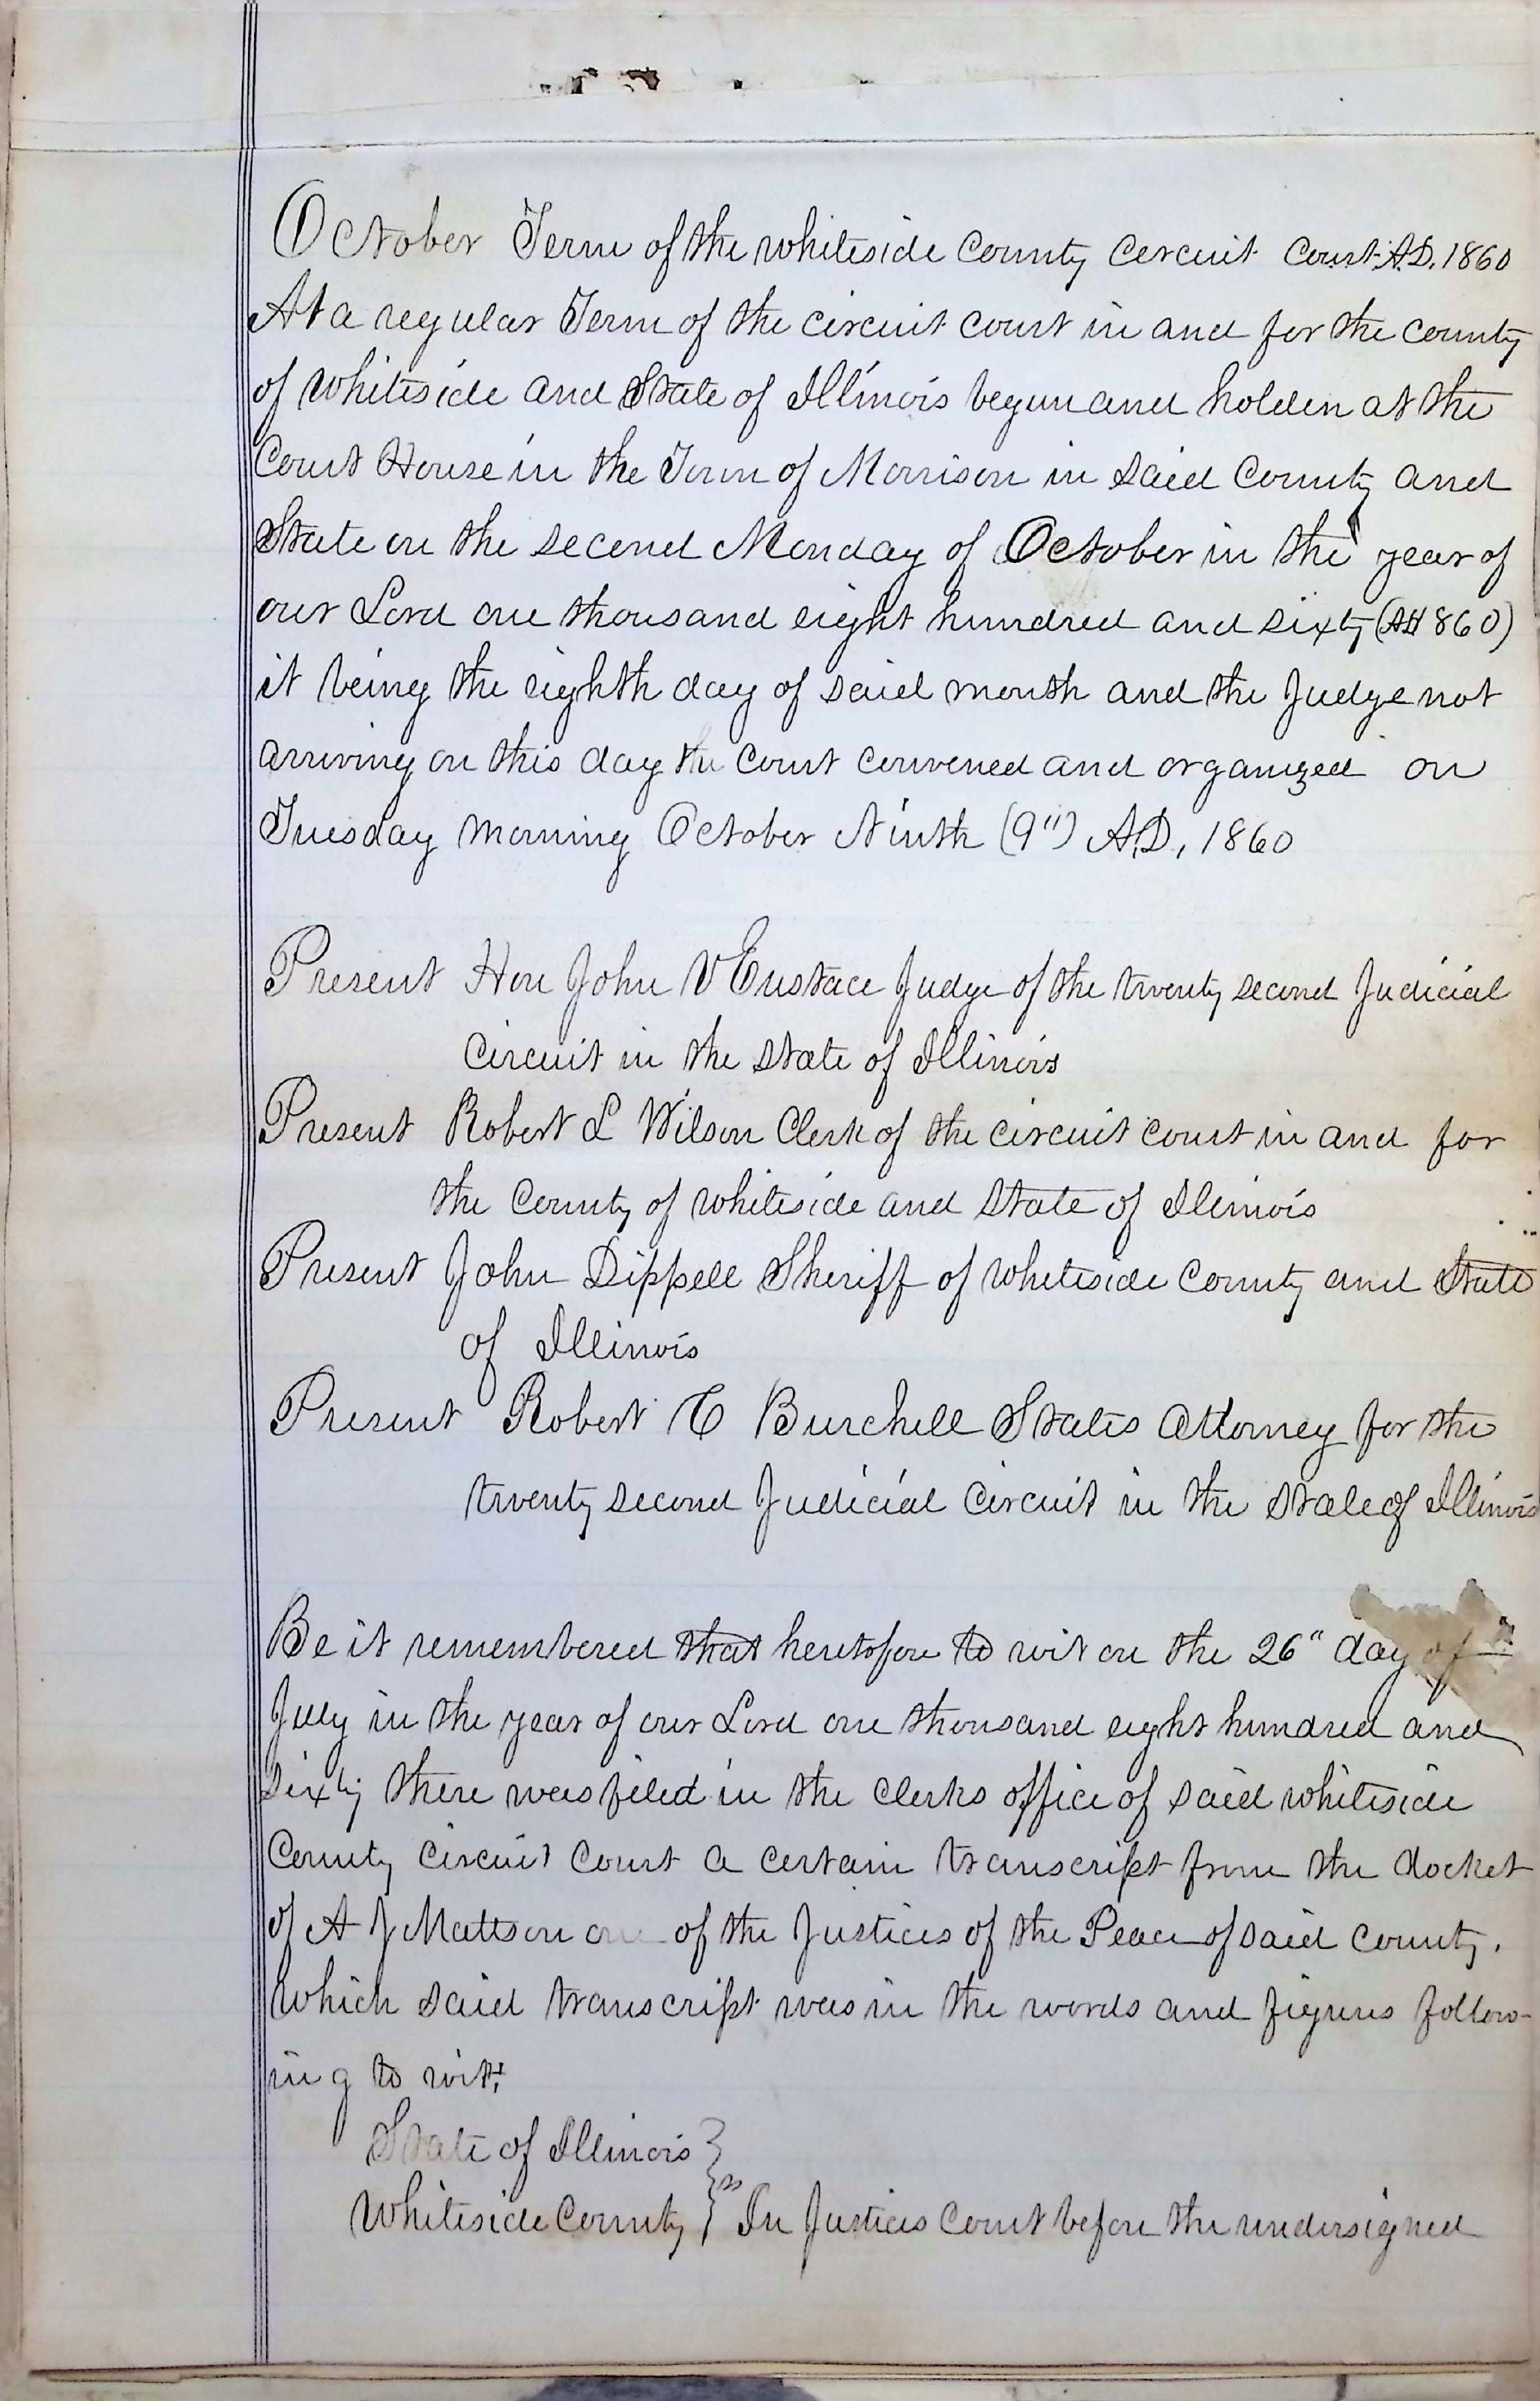 October Term of the Whiteside County Circuit Court A.D. 1860
At a regular Term of the circuit court in and for the county
of Whiteside and State of Illinois begun and holden at the
Court House in the Town of Morrison in said County and
State on the second Monday of October in the year of
our Lord one thousand eight hundred and sixty (1860)
it being the eighth day of said month and the Judge not
arriving on this day the Court convened and organized on
Tuesday morning October Ninth (9") A.D, 1860
Present Hon John V Eustace Judge of the twenty second Judicial
Circuit in the State of Illinois
Present Robert L Wilson Clerk of the circuit court in and for
the County of Whiteside and State of Illinois
Present John Dippell Sheriff of Whiteside County and State
of Illinois
Present Robert C Burchell States Attorney for the
twenty second Judicial Circuit in the State of Illinois
Be it remembered that heretofore to wit on the 26" day of
July in the year of our Lord one thousand eight hundred and
sixty there was filed in the Clerks office of said Whiteside
County Circuit Court a certain transcript from the docket
of A J Mattson one of the Justices of the Peace of said County.
Which said transcript was in the words and figures follow-
ing to wit;
State of Illinois }
Whiteside County } ss In Justices Court before the undersigned